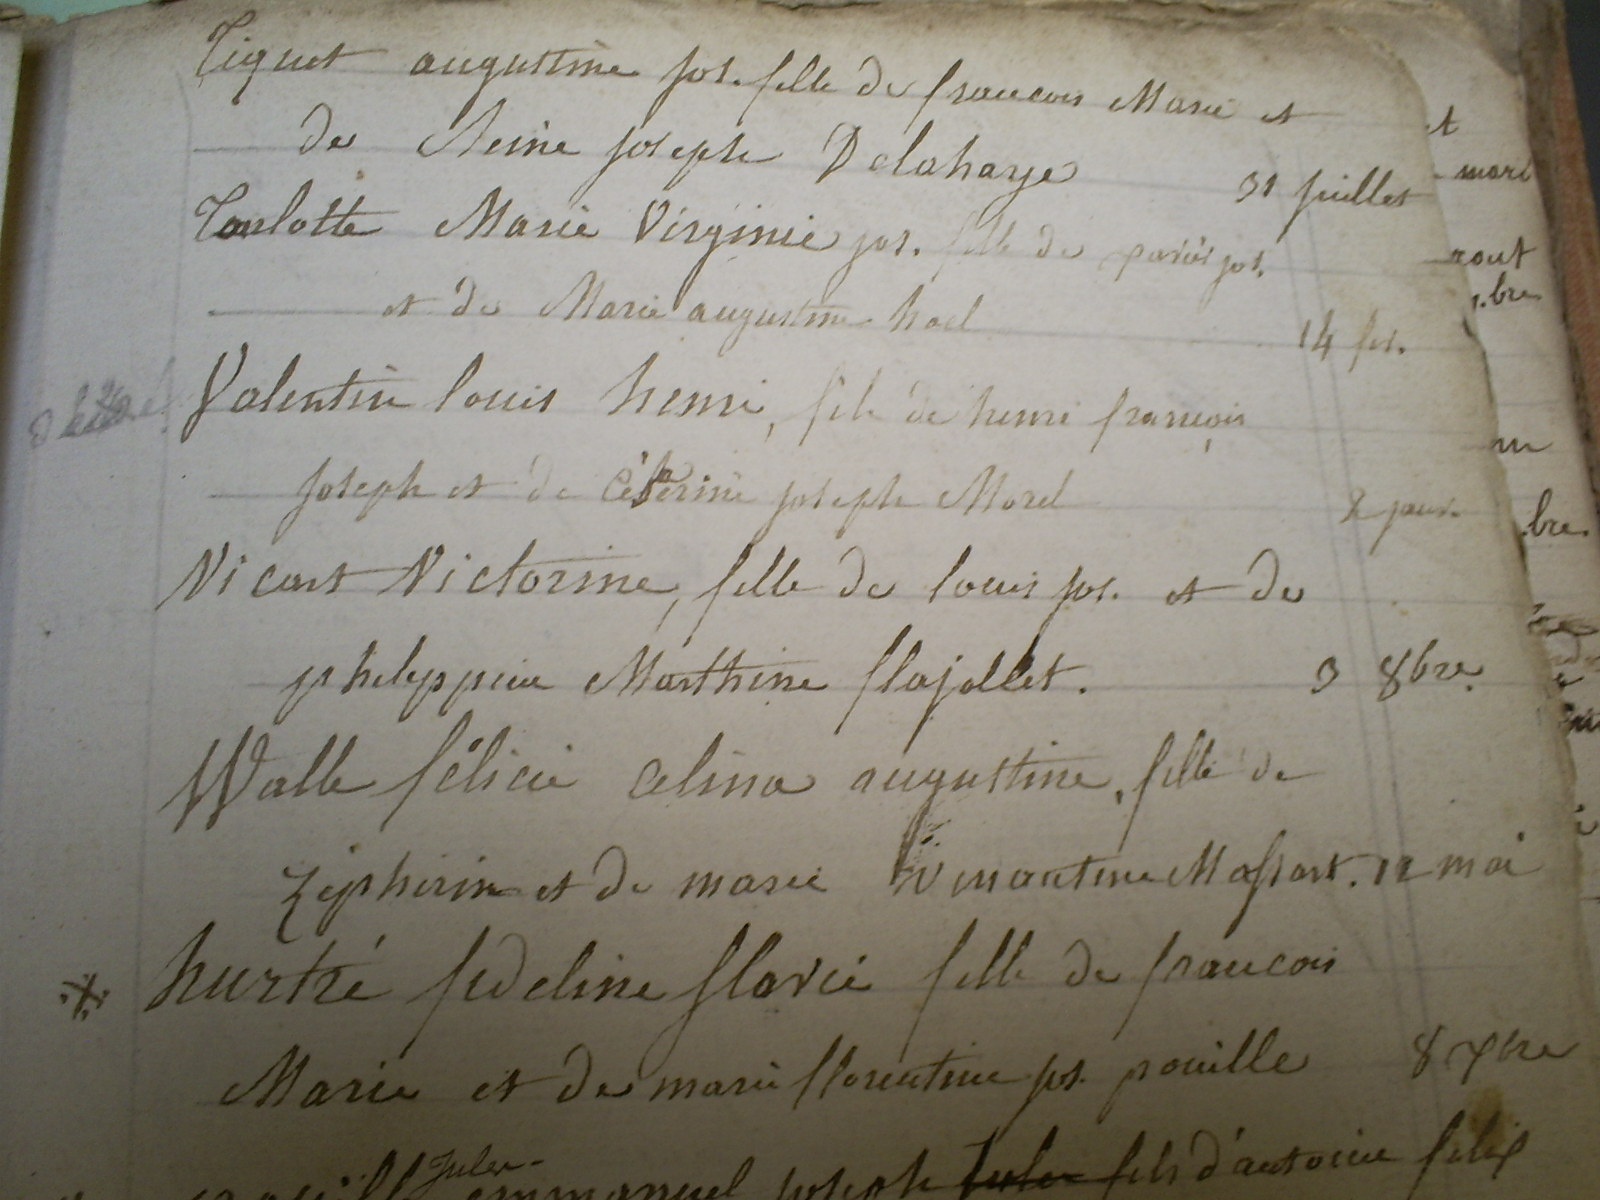 Tiquet augustine jos. fille de francois Marie et
de Reine joseph Delahaye 31 juillet
Tourlotte Marie Virginie jos. fille de jos.
et de Marie augustine hoel 14
Valentin louis henri, fils de henri françois
joseph et de joseph Morel 2 janv.
Vicart Victorine, fille de louis jos. et de
Marthine flajollet. 3 8bre.
Walle félicie Celina augustine, fille de
Zéphirin et de marie Massart. 12 mai
hurtré fideline flavie fille de francois
Marie et de marie florentine jos. pouille 8
Jules
emmanuel joseph fils d'antoine felix